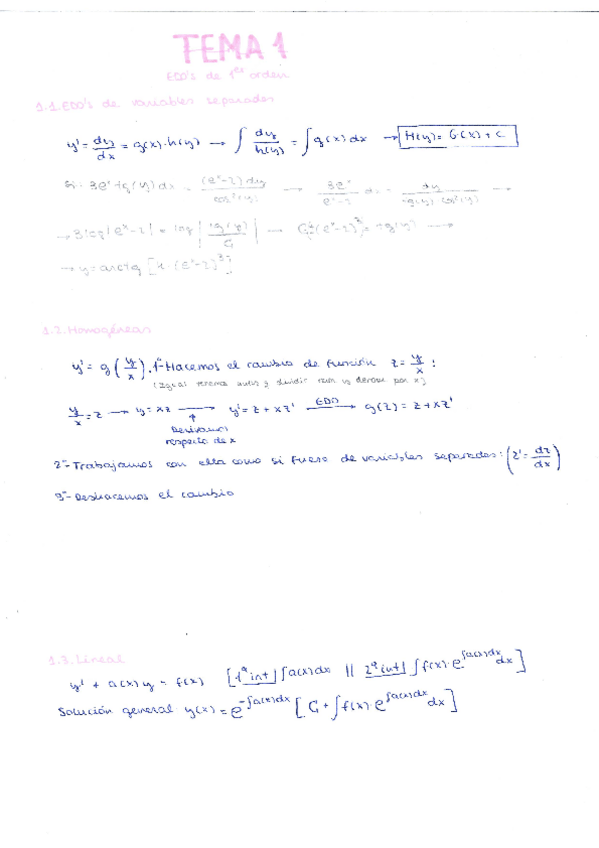 TEMA 1
EDO's de 1er orden
1.1. EDO's de variables separadas
y' = dy/dx = g(x)·h(y) → ∫ dy/h(y) = ∫ g(x) dx → H(y) = G(x) + C
3e^x tg(y) dx = (e^x-2) dy / cos²(y) → 3e^x/(e^x-2) dx = dy/(tg(y) cos²(y)) →
→ 3 log|e^x-2| = log|tg(y)/C| → (e^x-2)³ = tg(y) →
→ y = arctg [K·(e^x-2)³]
1.2. Homogéneas
y' = g(y/x). 1º- Hacemos el cambio de función z = y/x :
y/x = z → y = xz → y' = z + xz' EDO→ g(z) = z + xz'
Derivamos
respecto de x
2º- Trabajamos con ella como si fuera de variables separadas: (z' = dz/dx)
3º- Deshacemos el cambio
1.3. Lineal
y' + a(x)y = f(x) [1ª int] ∫a(x)dx || 2ª int] ∫f(x)·e^∫a(x)dx dx]
Solución general y(x) = e^-∫a(x)dx [C + ∫f(x)·e^∫a(x)dx dx]